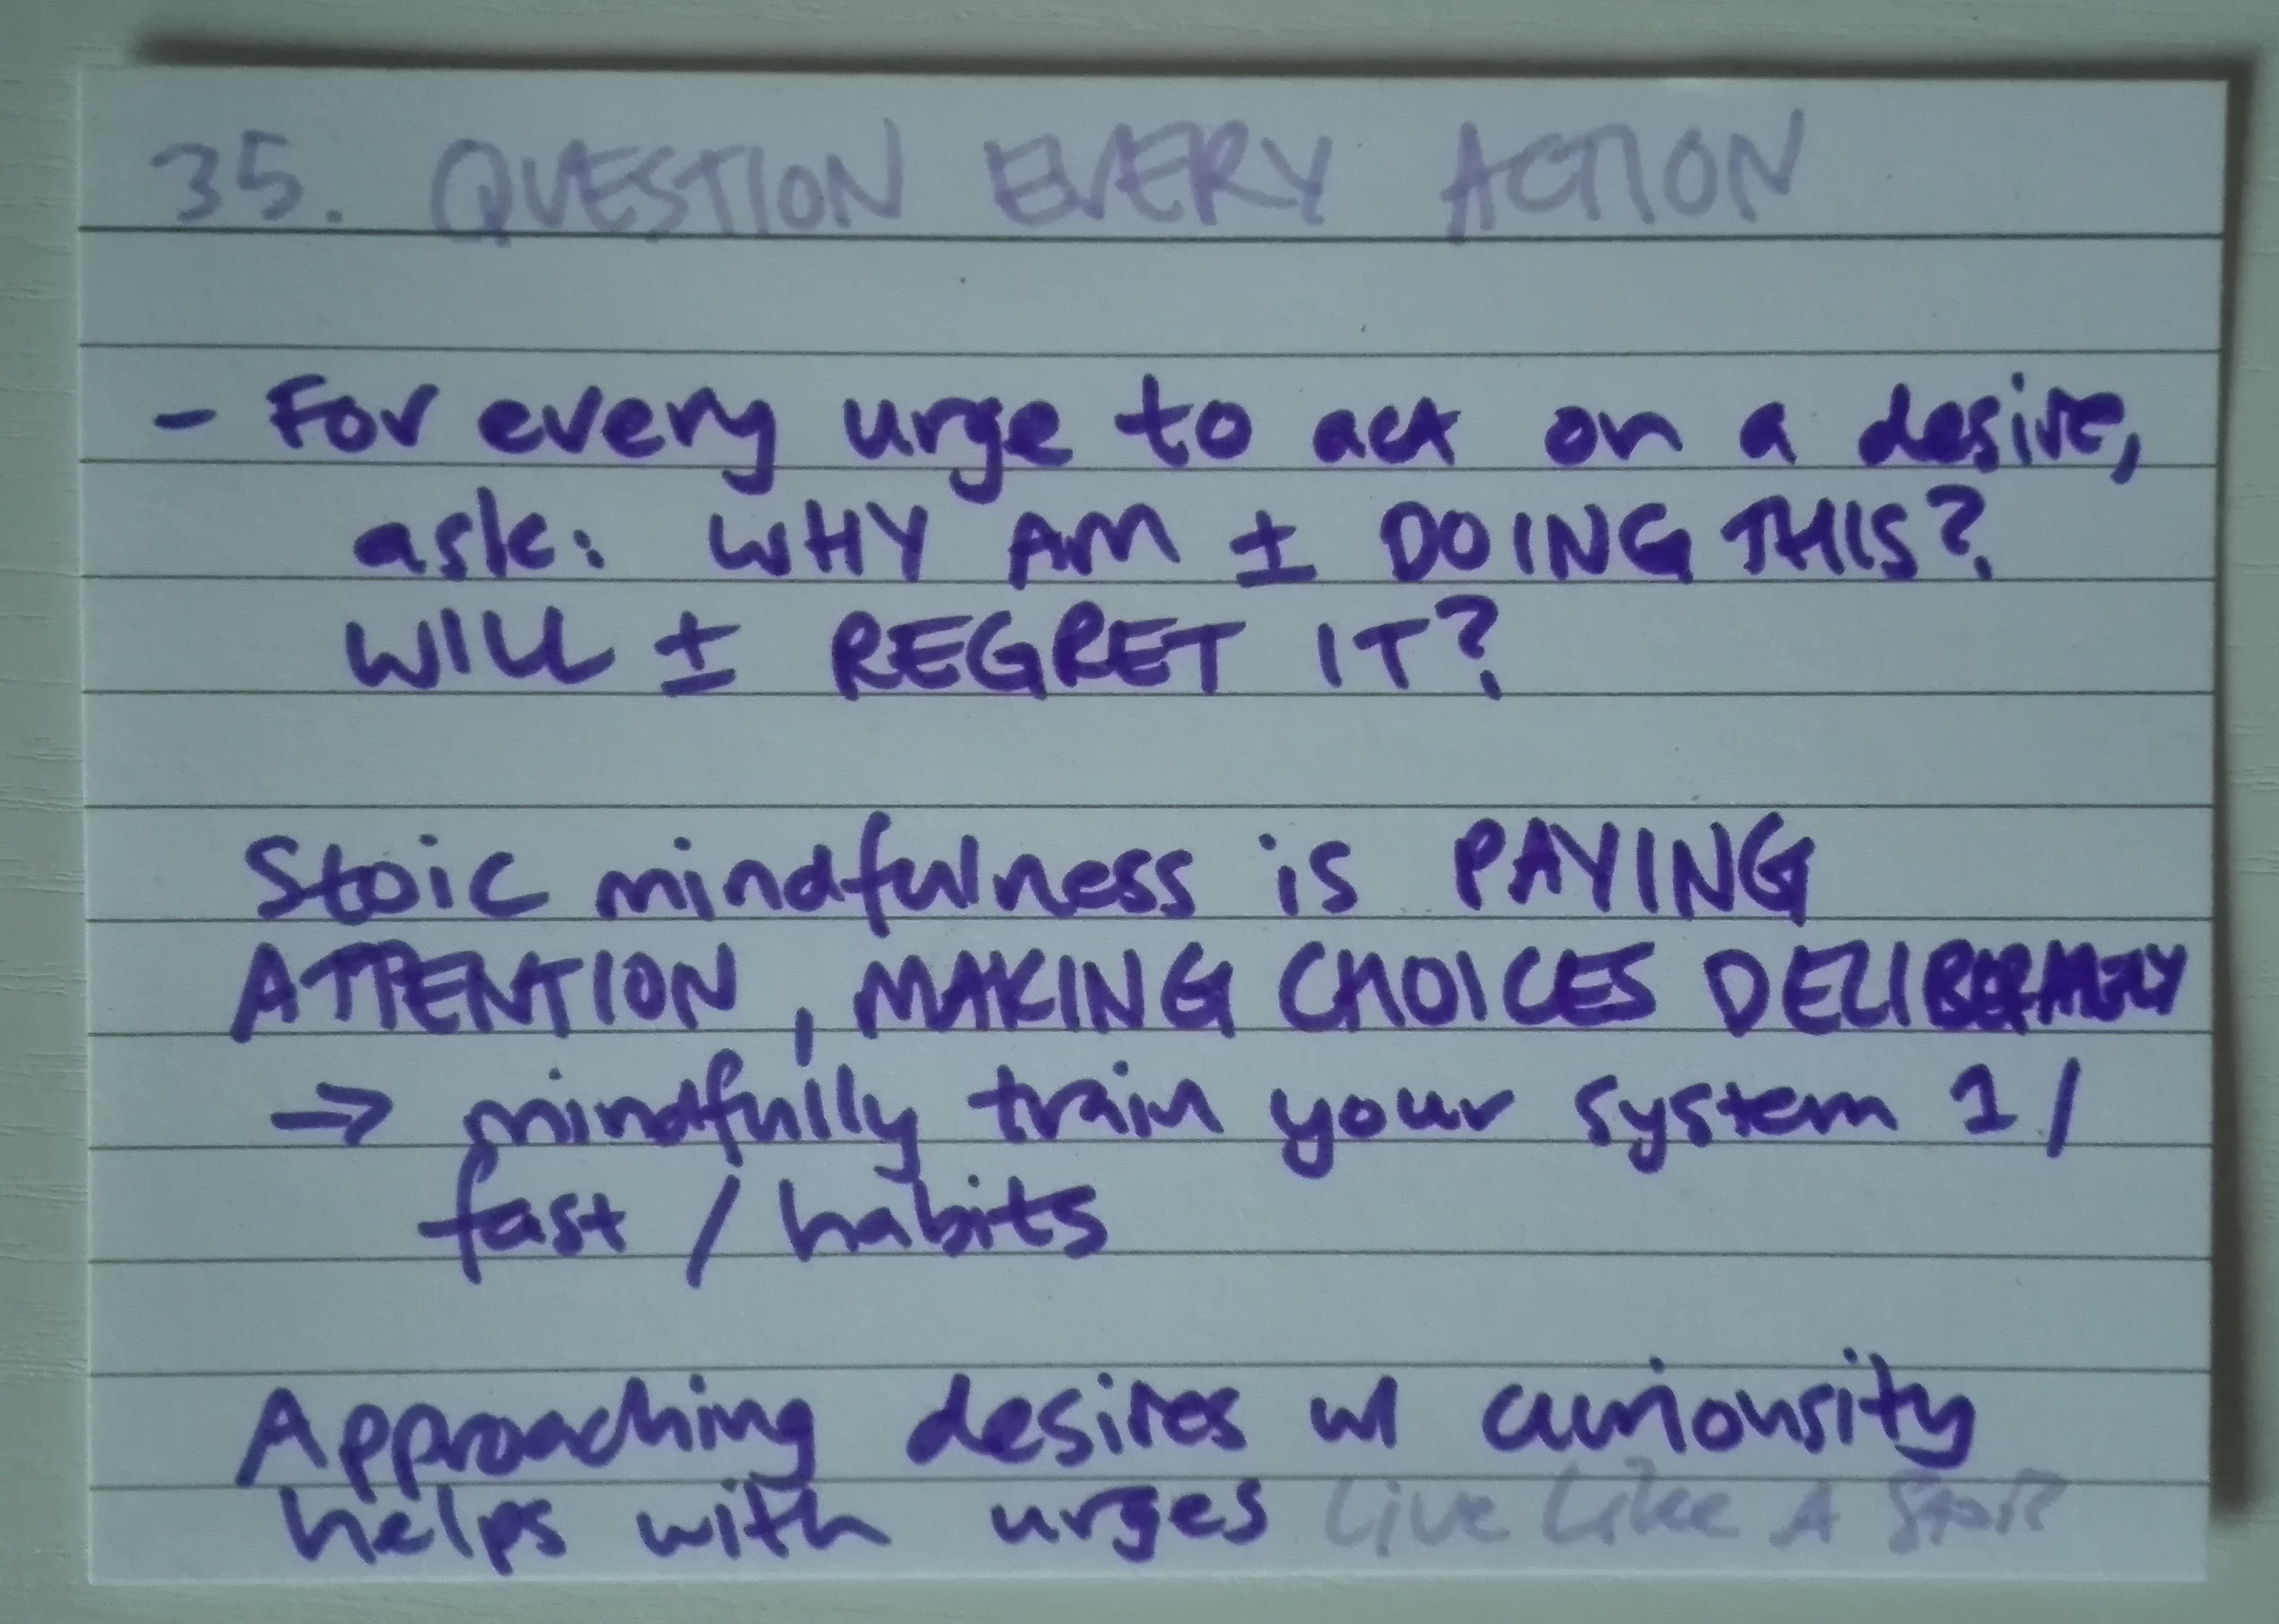 35. QUESTION EVERY ACTION
- For every urge to act on a desire,
ask: WHY AM I DOING THIS?
WILL I REGRET IT?
Stoic mindfulness is PAYING
ATTENTION, MAKING CHOICES DELIBERATELY
→ mindfully train your system 1/
fast / habits
Approaching desires w/ curiousity
helps with urges Live Like A